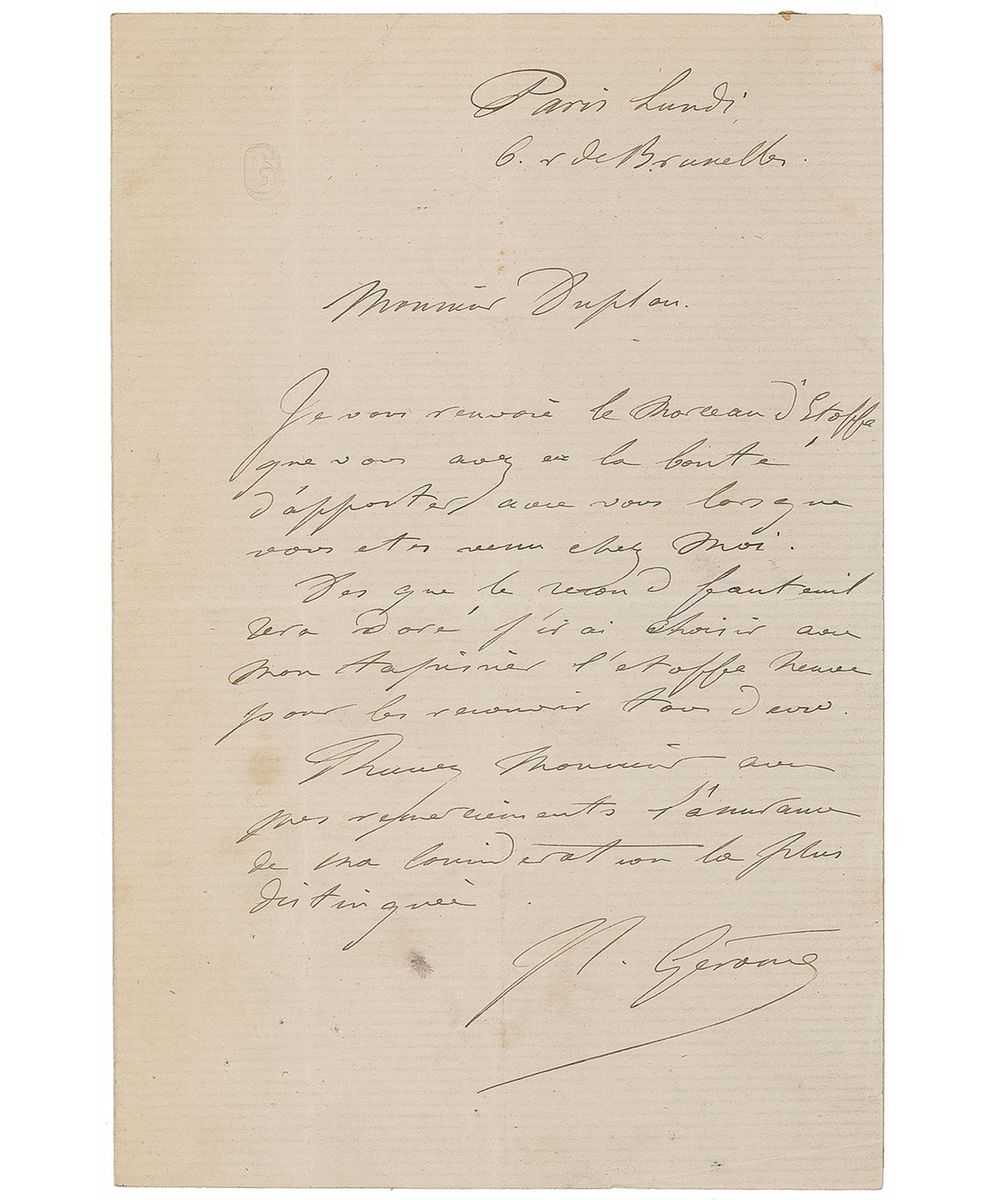 Paris Lundi
6. r de Bruxelles.
G
Monsieur Duplan.
Je vous renvoie le Morceau d'Etoffe
que vous avez eu la bonté
d'apporter avec vous lorsque
vous etes venu chez Moi.
Des que le second fauteuil
sera doré j'irai choisir avec
mon tapissier l'etoffe
pour les recouvrir tous deux.
Monsieur avec
mes remerciements l'assurance
de ma consideration la plus
distinguée.
Gérome